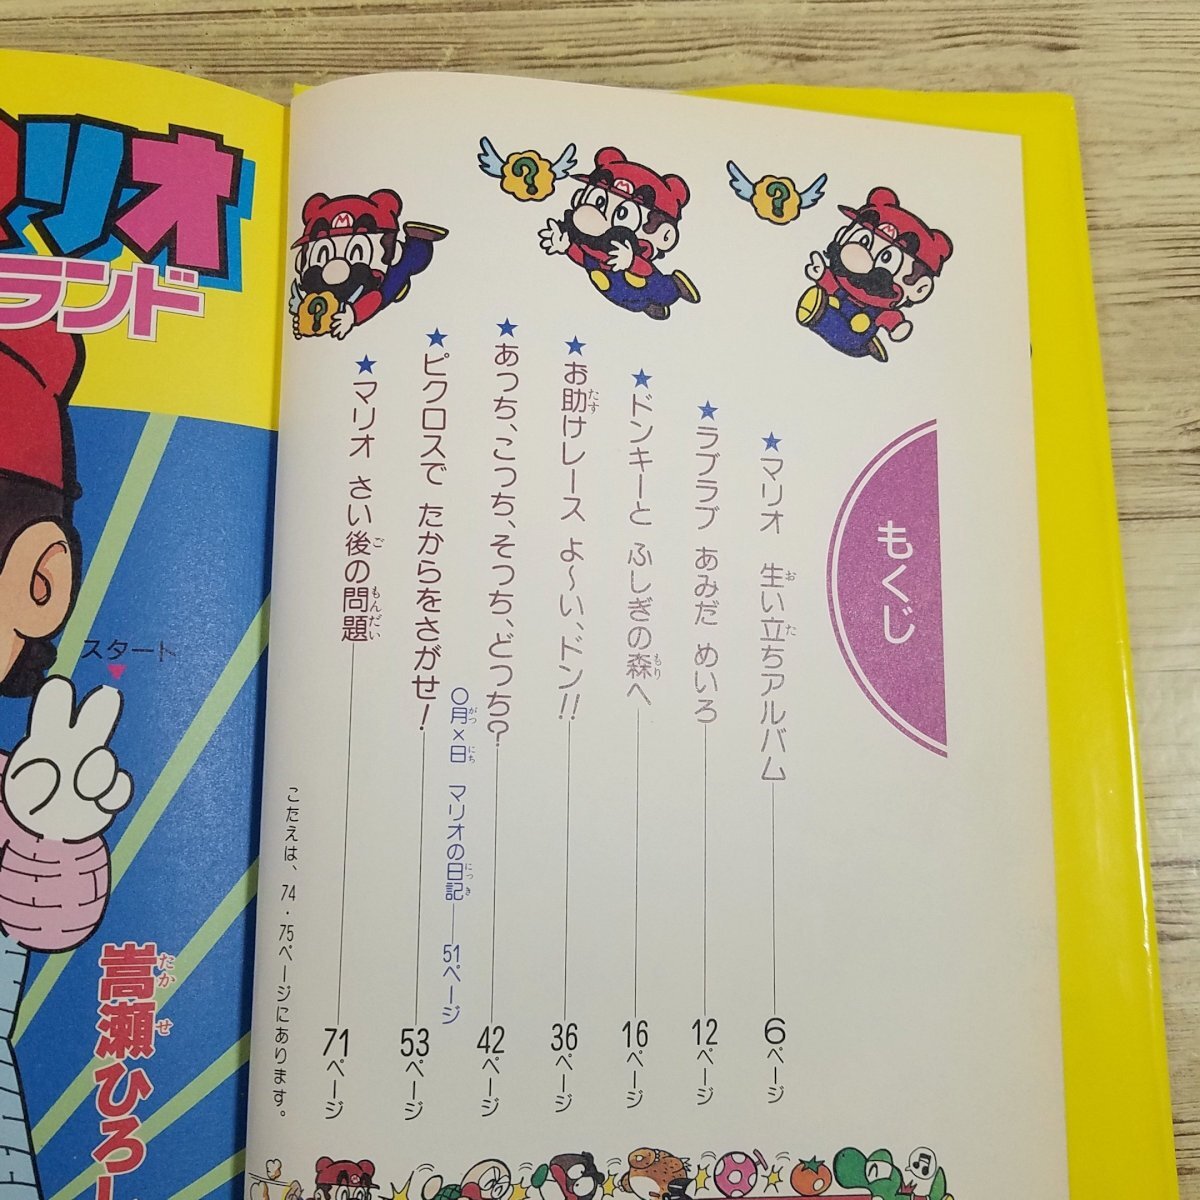 もくじ
★マリオ 生い立ちアルバム 6ページ
★ラブラブ あみだ めいろ 12ページ
★ドンキーと ふしぎの森へ 16ページ
★お助けレース よ〜い、ドン!! 36ページ
★あっち、こっち、そっち、どっち? 42ページ
〇月×日 マリオの日記 51ページ
★ピクロスで たからをさがせ! 53ページ
★マリオ さい後の問題 71ページ
こたえは、74・75ページにあります。
リオ
ランド
スタート
嵩瀬ひろ